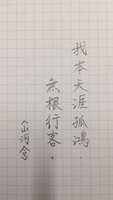 我本天涯孤鸿，
无根行客。
《山河令》